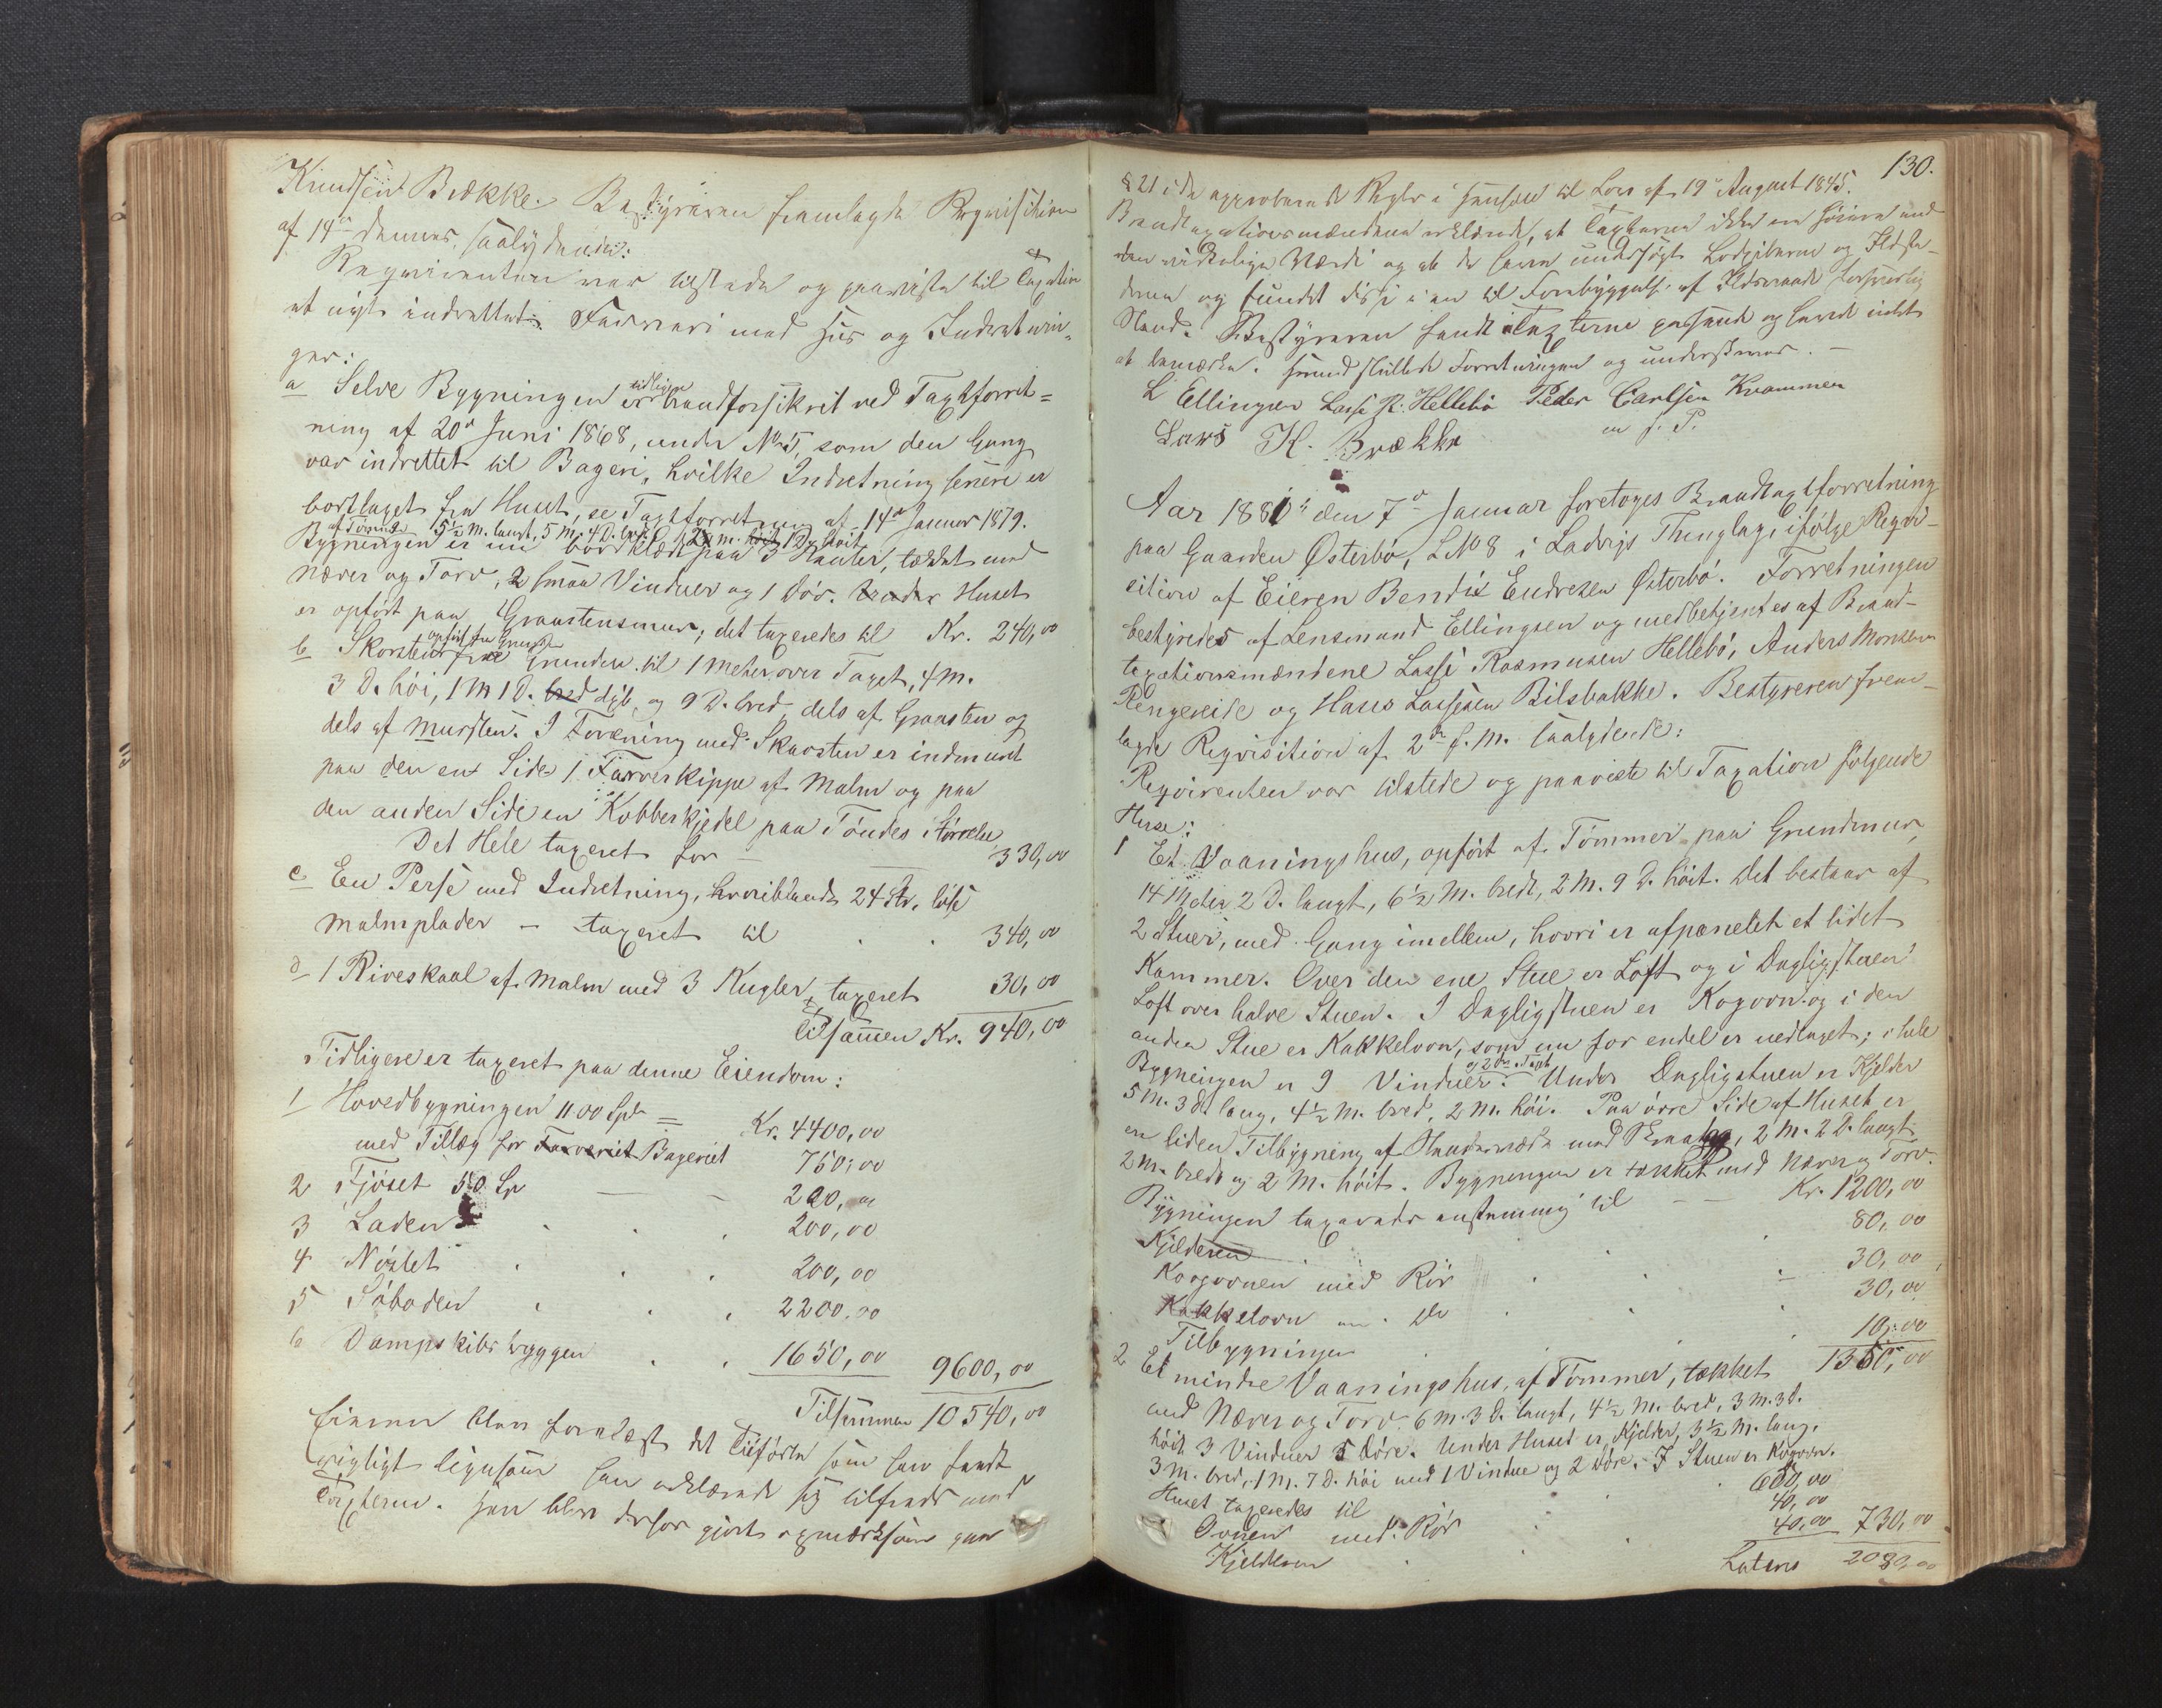 Knudsen Brække. Bestyreren fremlagde Requisition
af 14de dennes, saalydende:
Requirenten var tilstede og paaviste til Taxation
et nyt indrettet Farveri med Hus og Indretnin-
ger:
a Selve Bygningen er tidligere brandforsikret ved Taxtforret-
ning af 20de Juni 1868, under No 5, som den Gang
var indrettet til Bageri, hvilke Indretning senere er
borttaget fra Huset, se Taxtforretning af 14de Januar 1879.
af Tømmer 5½ M. langt, 5 M. 4 D. bredt, 2 M. 1 D. høit
Bygningen er nu bordklædt paa 3 Kanter, tækket med
Næver og Torv, 2 smaa Vinduer og 1 Dør. Huset
er opført paa Graastensmur; det taxeredes til Kr. 240,00
opført fra Grunden
b Skorsten fra Grunden til 1 Meter over Taget, 4 M.
3 D. høi, 1 M 1 D. bred dyb, og 9 D. bred, dels af Graasten og
dels af Mursten. I Forening med Skorsten er indmuret
paa den ene Side 1 Farverkippe af Malm og paa
den anden Side en Kobberkjedel paa Tøndes Størrelse
Det Hele taxeret for — 330,00
c En Perse med Indretning, hvoriblandt 24 Stk. løse
Malmplader — taxeret til . . 340,00
d 1 Riveskaal af Malm med 3 Kugler, taxeret 30,00
Tilsammen Kr. 940,00
Tidligere er taxeret paa denne Eiendom:
1 Hovedbygningen 1100 Spd = Kr. 4400,00
med Tillæg for Farveriet Bageriet 750,00
2 Fjøset 50 Sp — — 200,00
3 Laden . . . 200,00
4 Nøstet . . . 200,00
5 Søboden . . . 2200,00
6 Dampskibsbryggen . . 1650,00 9600,00
Tilsammen 10540,00
Eieren blev forelæst det Tilførte som han fandt
rigtigt ligesom han erklærede sig tilfreds med
Taxterne. Han blev derfor gjort opmærksom paa
130.
§ 21 i de approberede Regler i Henhold til Lov af 19de August 1845.
Brandtaxationsmændene erklærede, at Taxterne ikke ere høiere end
den virkelige Værdi og at de have undersøgt Lodpiberne og Ildste-
derne og fundet disse i en til Forebyggelse af Ildsvaade forsvarlig
Stand. Bestyreren fandt Taxterne passende og havde intet
at bemærke. Hermed sluttede Forretningen og underskrevet. —
L Ellingsen Lasse R. Hellebø Peder Carlsen Kvammen
m. f. P.
Lars K. Brække
Aar 1881 den 7de Januar foretoges Brandtaxtforretning
paa Gaarden Østerbø, LNo 8 i Ladvigs Thinglag, ifølge Reqvi-
sition af Eieren Bendix Endresen Østerbø. Forretningen
bestyredes af Lensmand Ellingsen og medbetjentes af Brand-
taxationsmændene Lasse Rasmusen Hellebø, Anders Monsen
Rengereide og Hans Lassesen Bilsbakke. Bestyreren frem-
lagde Reqvisition af 2den f. M. saalydende:
Reqvirenten var tilstede og paaviste til Taxation følgende
Huse:
1 Et Vaaningshus, opført af Tømmer paa Grundmur,
14 Meter 2 D. langt, 6½ M. bredt, 2 M. 9 D. høit. Det bestaar af
2 Stuer, med Gang imellem, hvori er afpanelet et lidet
Kammer. Over den ene Stue er Loft og i Dagligstuen
Loft over halve Stuen. I Dagligstuen er Kogovn og i den
anden Stue er Kakkelovn, som nu for endel er nedtaget; i hele
Bygningen er 9 Vinduer. Under Dagligstuen er Kjelder
5 M. 3 D. lang, 4½ M. bred, 2 M. høi. Paa øvre Side af Huset er
en liden Tilbygning af Standerværk med Skraatag, 2 M. 2 D. langt
2 M. bredt og 2 M. høit. Bygningen er tækket med Næver og Torv.
Bygningen taxeredes enstemmig til — — Kr. 1200,00
Kjelderen . . . 80,00
Kogovnen med Rør . . . 30,00
Kakkelovn m. do . . . 30,00
Tilbygningen . . . 10,00
1350,00
2 Et mindre Vaaningshus, af Tømmer, tækket
med Næver og Torv 6 M. 3 D. langt, 4½ M. bred, 3 M. 3 D.
høit 3 Vinduer 5 Døre. Under Huset er Kjelder, 3½ M. lang,
3 M. bred, 1 M. 7 D. høi med 1 Vindue og 2 Døre. I Stuen er Kogovn.
Huset taxeredes til . . 650,00
Ovnen med Rør . . 40,00
Kjelderen . . . 40,00 730,00
Latus 2080,00